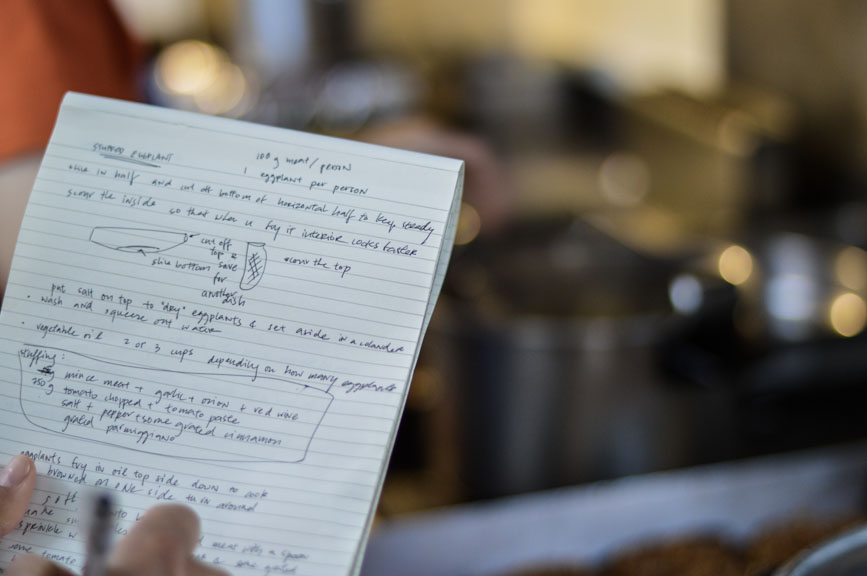 STUFFED EGGPLANT
100 g meat / person
1 eggplant per person
slice in half and cut off bottom of horizontal half to keep steady
scour the inside so that when u fry it interior cooks faster
cut off top &
slice bottom save for another dish
scour the top
put salt on top to "dry" eggplants & set aside in a colander
• wash and squeeze out water
• vegetable oil 2 or 3 cups depending on how many eggplants
stuffing:
mince meat + garlic + onion + red wine
250g tomato chopped + tomato paste
salt + pepper + some grated cinnamon
grated parmiggiano
eggplants fry in oil top side down to cook
browned on one side turn around
soft
sprinkle
meat with a spoon
some tomato
& some grated